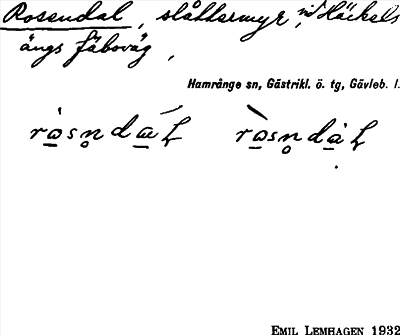 Rosendal, slåttermyr, vid Häckels
ängs fäboväg,
Hamrånge sn, Gästrikl. ö. tg, Gävleb. l.
EMIL LEMHAGEN 1932